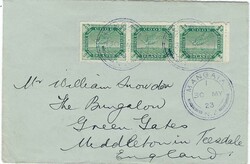 COOK COOK COOK
ISLANDS ISLANDS ISLANDS
MANGAIA
30 MY
23
Mr William Snowden
The Bungalow
Green Gates
Middleton in Teesdale
England